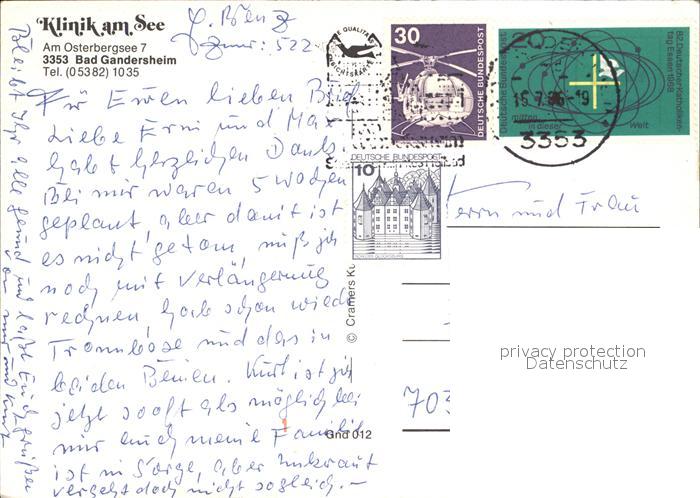 Klinik am See
Am Osterbergsee 7
3353 Bad Gandersheim
Tel. (05382) 1035
Zimmer: 522
Für Euren lieben Brief
liebe Erni und Max
habt herzlichen Dank.
Bei mir waren 5 Wochen
geplant, aber damit ist
es nicht getan, muß ich
noch mit Verlängerung
rechnen, hab schon wieder
Trombose und das in
beiden Beinen. Kurt ist ja
jetzt so oft als möglich bei
mir auch meine Familie
ist in Sorge, aber Unkraut
vergeht doch nicht sogleich. –
Bleibt Ihr alle gesund und laßt Euch grüßen
von mir und Kurt
30
DEUTSCHE BUNDESPOST
Deutsche Bundespost
82. Deutscher Katholiken-
tag Essen 1968
mitten
in dieser
Welt
15.7.86-19
3353
DEUTSCHE BUNDESPOST
10
SCHLOSS GLÜCKSBURG
Herrn und Frau
© Cramers Ku
703
Gnd 012
privacy protection
Datenschutz